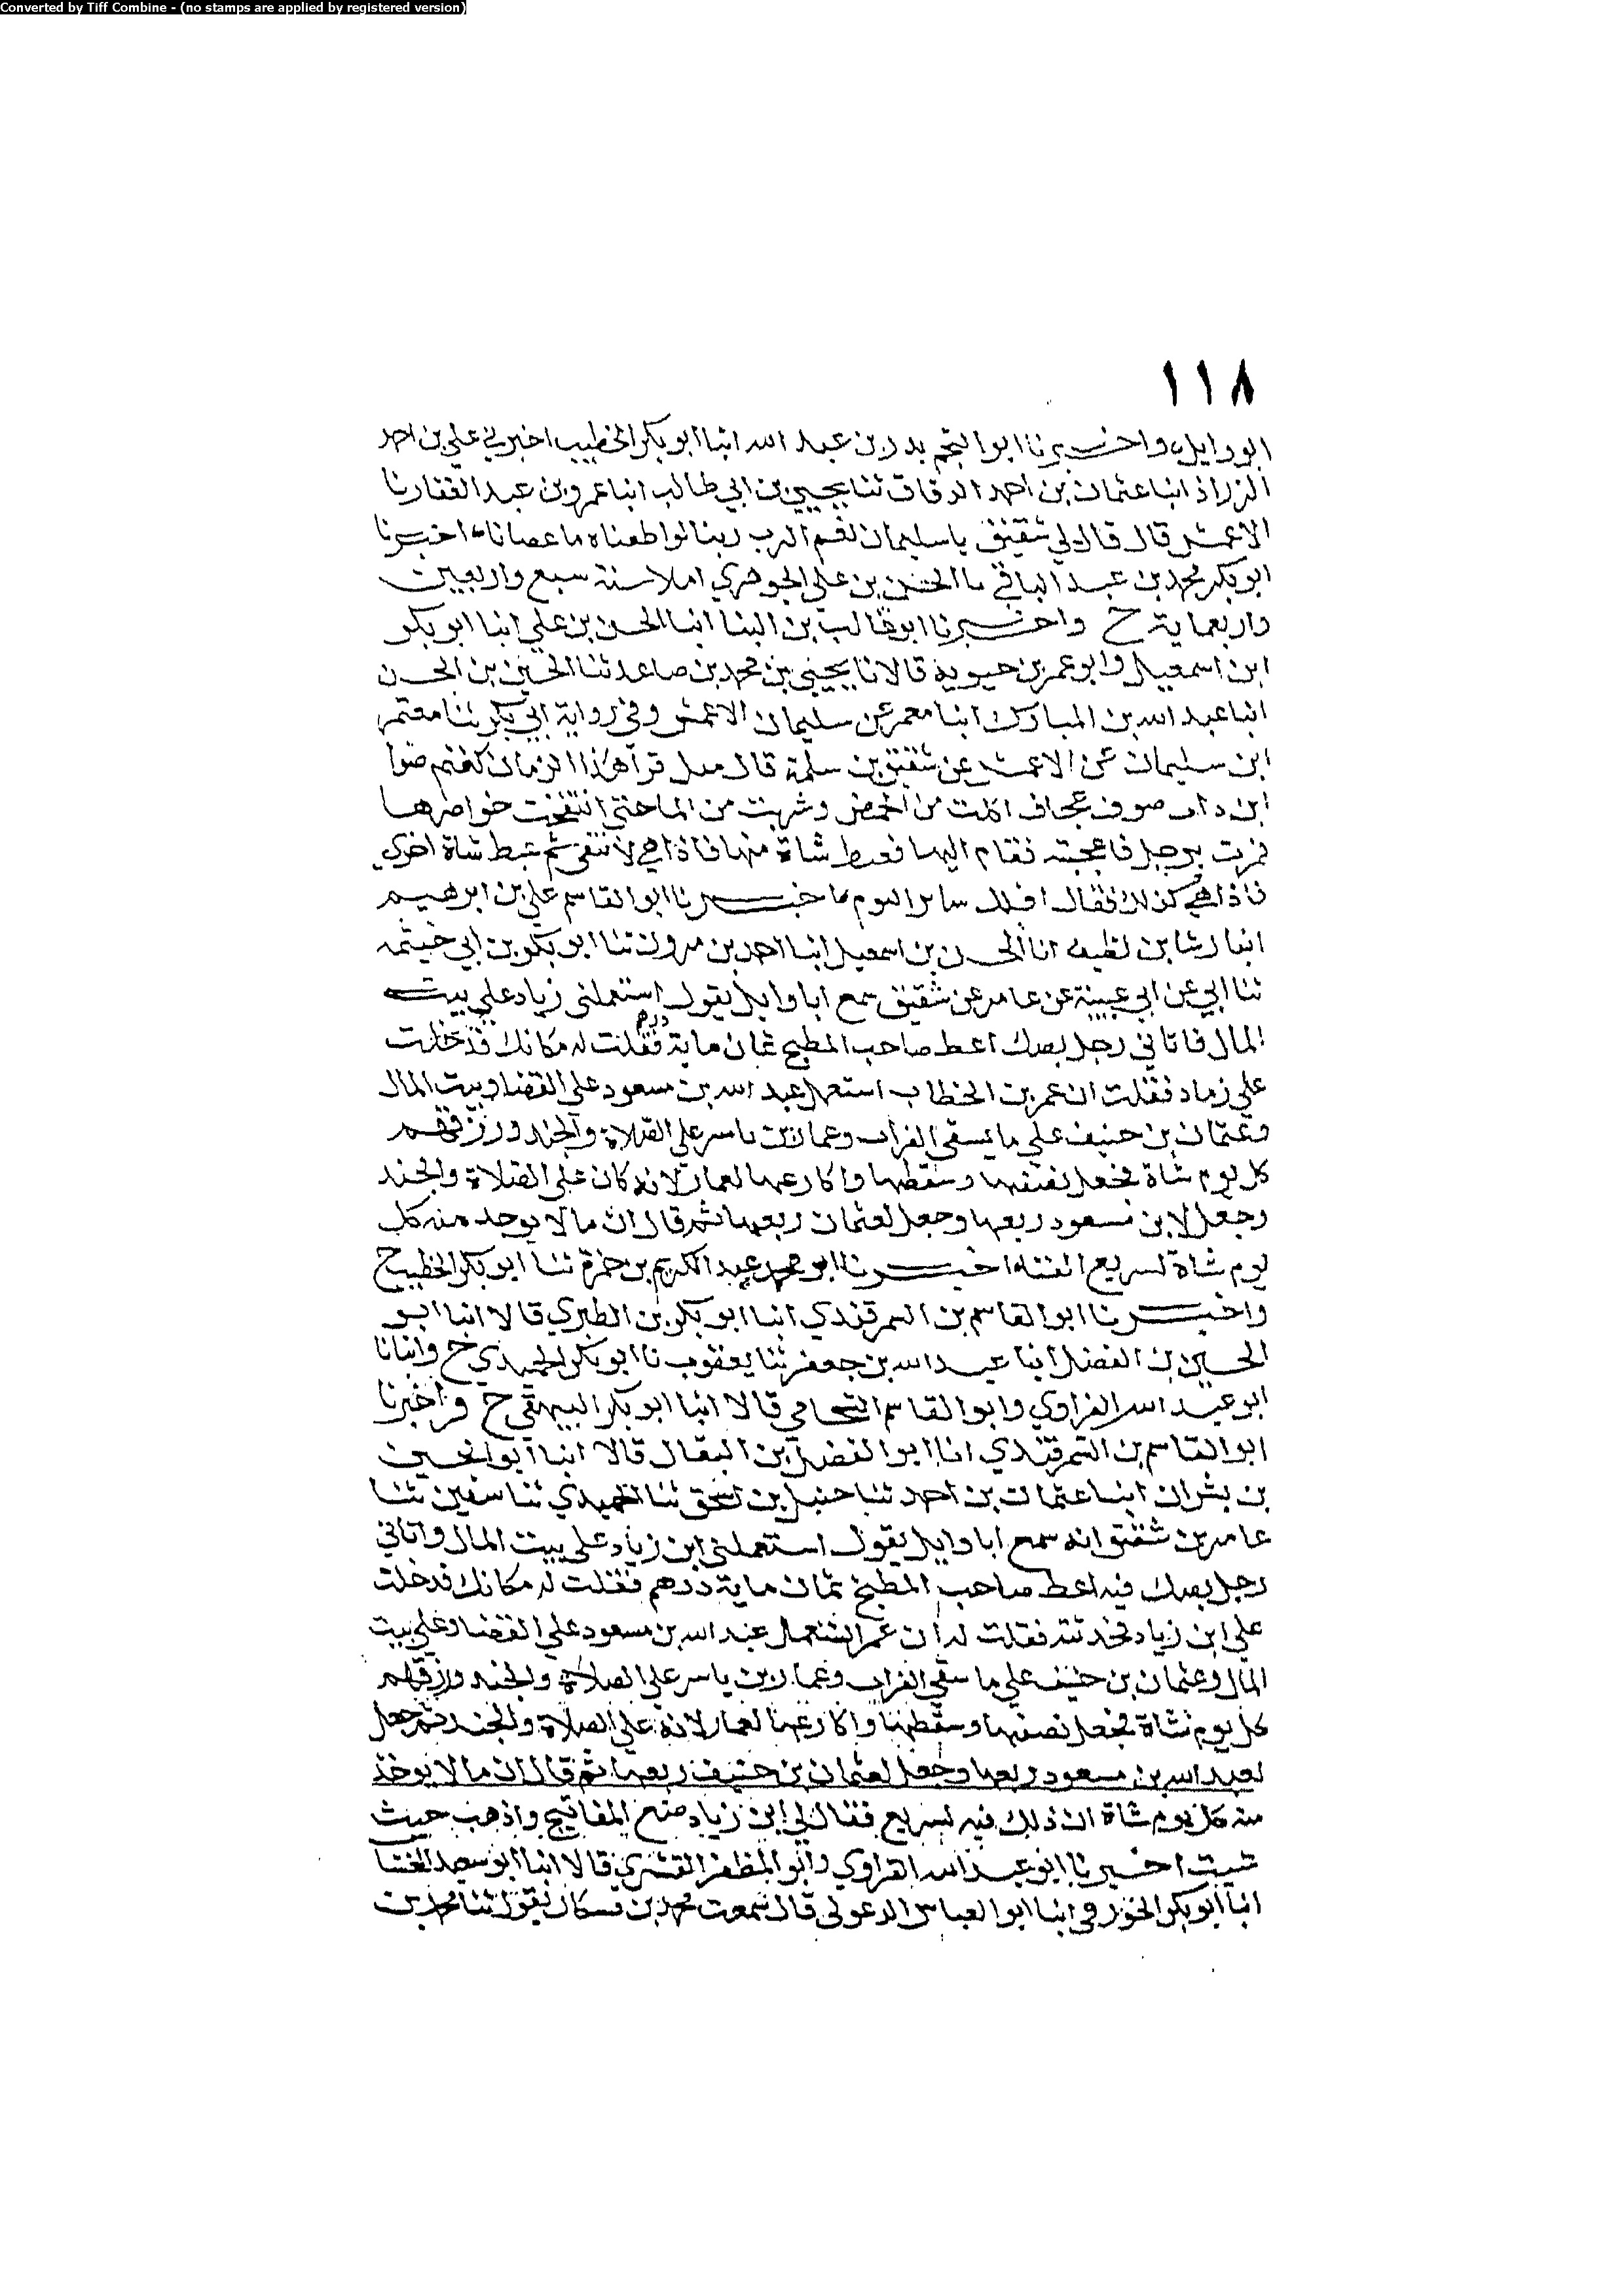 Converted by Tiff Combine - (no stamps are applied by registered version)
١١٨
ابو وايل واخبرنا ابو النجم بدر بن عبد الله انبا ابو بكر الخطيب اخبرني علي بن احمد
الرزاز انبا عثمان بن احمد الدقاق ثنا يحيى بن ابي طالب انبا عمرو بن عبد الغفار نا
الاعمش قال قال لي شقيق يا سليمان نعم الرب ربنا لو اطعناه ما عصانا اخبرنا
ابو بكر محمد بن عبد الباقي نا الحسن بن علي الجوهري املا سنة سبع واربعين
واربعماية ح واخبرنا ابو غالب بن البنا انبا الحسن بن علي انبا ابو بكر
ابن اسمعيل وابو عمر بن حيوية قالا نا يحيى بن محمد بن صاعد ثنا الحسين بن الحسن
انبا عبد الله بن المبارك انبا معمر عن سليمان الاعمش وفي رواية ابي بكر ثنا معتمر
ابن سليمان عن الاعمش عن شقيق بن سلمة قال مثل قرآ هذا الزمان كغنم ضوا
ابن ذات صوف عجاف اكلت من الحمض وشربت من الما حتى انتفخت خواصرها
فمرت برجل فاعجبته فقام اليها فعبط شاة منها فاذا هي لا تنقي ثم عبط شاة اخري
فاذا هي كذلك فقال اف لك ساير اليوم اخبرنا ابو القاسم علي بن ابرهيم
انبا رشا بن نظيف انا الحسن بن اسمعيل انبا احمد بن مروان ثنا ابو بكر بن ابي خيثمه
ثنا ابي عن ابي عيينة عن عامر عن شقيق سمع ابا وايل يقول استعملني زياد علي بيت
المال فاتاني رجل بصك اعط صاحب المطبخ ثمان ماية درهم فقلت له مكانك فدخلت
علي زياد فقلت ان عمر بن الخطاب استعمل عبد الله بن مسعود على القضا وبيت المال
وعثمان بن حنيف علي ما يسقي الفرات وعمار بن ياسر علي الصلاة والجند ورزقهم
كل يوم شاة فجعل نصفها وسقطها واكارعها لعمار لانه كان علي الصلاة والجند
وجعل لابن مسعود ربعها وجعل لعثمان ربعها ثم قال ان مالا يوخذ منه كل
يوم شاة لسريع الفنا اخبرنا ابو محمد عبد الكريم بن حمزة ثنا ابو بكر الخطيب ح
واخبرنا ابو القاسم بن السمرقندي انبا ابو بكر بن الطبري قالا انبا ابو
الحسين بن الفضل انبا عبد الله بن جعفر ثنا يعقوب نا ابو بكر الحميدي ح وانبانا
ابو عبد الله الفراوي وابو القاسم الشحامي قالا انبا ابو بكر البيهقي ح واخبرنا
ابو القاسم بن السمرقندي انا ابو الفضل بن البقال قالا انبا ابو الحسين
بن بشران انبا عثمان بن احمد ثنا حنبل بن اسحق ثنا الحميدي ثنا سفين ثنا
عامر بن شقيق انه سمع ابا وايل يقول استعملني ابن زياد على بيت المال واتاني
رجل بصك فيه اعط صاحب المطبخ ثمان ماية درهم فقلت له مكانك فدخلت
علي ابن زياد فحدثته فقلت له ان عمر استعمل عبد الله بن مسعود علي القضا وعلي بيت
المال وعثمان بن حنيف علي ما سقي الفرات وعمار بن ياسر علي الصلاة والجند ورزقهم
كل يوم شاة فجعل نصفها وسقطها واكارعها لعمار لانه علي الصلاة والجند ثم جعل
لعبد الله بن مسعود ربعها وجعل لعثمان بن حنيف ربعها ثم قال ان مالا يوخذ
منه كل يوم شاة ان ذلك فيه لسريع فقال لي ابن زياد ضع المفاتيح واذهب حيث
شيت اخبرنا ابو عبد الله الفراوي وابو المظفر القشيري قالا انبا ابو سعيد الخشا
انبا ابو بكر الجوزقي انبا ابو العباس الدغولي قال سمعت محمد بن يقول ثنا محمد بن